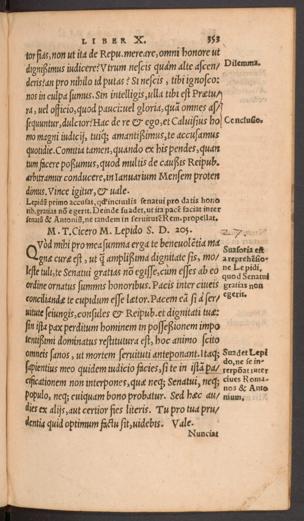 LIBER X. 353
tor fias, non ut ita de Repu. mereare, omni honore ut
dignißimus iudicere? Vtrum nescis quàm alte ascen/
deris: an pro nihilo id putas? Si nescis, tibi ignosco:
nos in culpa sumus. Sin intelligis, ulla tibi est Prætu/
ra, uel officio, quod pauci: uel gloria, quã omnes as/
sequuntur, dulcior? Hac de re & ego, et Caluisius ho
mo magni iudicij, tuiq; amantißimus, te accusamus
quotidie. Comitia tamen, quando ex his pendes, quan
tum facere poßumus, quod multis de caußis Reipub.
arbitramur conducere, in Ianuarium Mensem proten
dimus. Vince igitur, & uale.
Dilemma.
Conclusio.
Lepidũ primo accusat, qđ cinciulis senatui pro datis hono
rib. gratias nõ egerit. Deinde suadet, ut ita pacẽ faciat inter
senatũ & Antoniũ, ne tandem in seruitutẽ Rem. propellat.
M. T. Cicero M. Lepido S. D. 205.
QVòd mihi pro mea summa erga te beneuolẽtia ma
gnæ curæ est, ut q̃ amplißima dignitate sis, mo/
leste tuli, te Senatui gratias nõ egisse, cum esses ab eo
ordine ornatus summis honoribus. Pacis inter ciueis
conciliandæ te cupidum esse lætor. Pacem eã si à ser/
uitute seiungis, consules & Reipub. et dignitati tuæ:
sin ista pax perditum hominem in possessionem impo
tentißimi dominatus restitutura est, hoc animo scito
omneis sanos, ut mortem seruituti anteponant. Itaq;
sapientius meo quidem iudicio facies, si te in istã pa/
cificationem non interpones, quæ neq; Senatui, neq;
populo, neq; cuiquam bono probatur. Sed hæc au/
dies ex alijs, aut certior fies literis. Tu pro tua pru/
dentia quid optimum factu sit, uidebis. Vale.
Nunciat
Suasoria est
a reprehẽsio=
ne Lepidi,
quod Senatui
gratias non
egerit.
Suadet Lepi
do, ne se in=
terpõat inter
ciues Roma=
nos & Anto
nium.